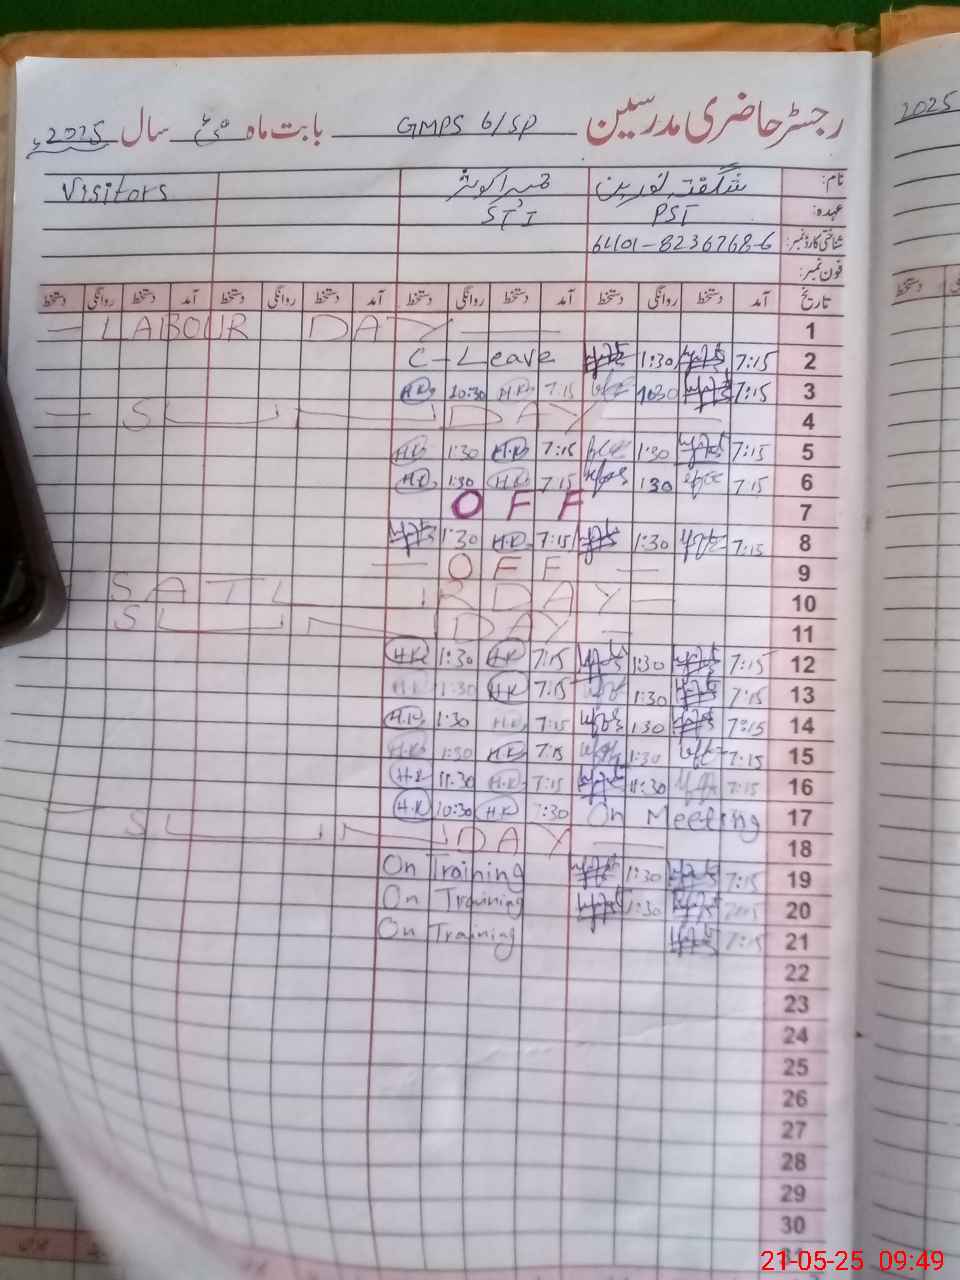 رجسٹر حاضری مدرسین GMPS 6/SP بابت ماہ مئی سال 2025ء
2025
نام: شگفتہ نورین Visitors
عہدہ: PST ST'I
شناختی کارڈ نمبر:
فون نمبر:
تاریخ آمد دستخط روانگی دستخط آمد دستخط روانگی دستخط آمد دستخط روانگی دستخط
— LABOUR DAY — 1
C-Leave 1:30 7:15 2
H.K 10:30 H.K 7:15 10:30 7:15 3
— SUNDAY — 4
H.K 1:30 H.K 7:15 1:30 7:15 5
H.K 1:30 H.K 7:15 1:30 7:15 6
OFF 7
1:30 H.K 7:15 1:30 7:15 8
— OFF — 9
SATURDAY — 10
SUNDAY — 11
H.K 1:30 H.K 7:15 1:30 7:15 12
H.K 1:30 H.K 7:15 1:30 7:15 13
H.K 1:30 H.K 7:15 1:30 7:15 14
H.K 1:30 H.K 7:15 1:30 7:15 15
H.K 11:30 H.K 7:15 11:30 7:15 16
H.K 10:30 H.K 7:30 On Meeting 17
— SUNDAY — 18
On Training 1:30 7:15 19
On Training 1:30 20
On Training 7:15 21
22
23
24
25
26
27
28
29
30
31
21-05-25 09:49